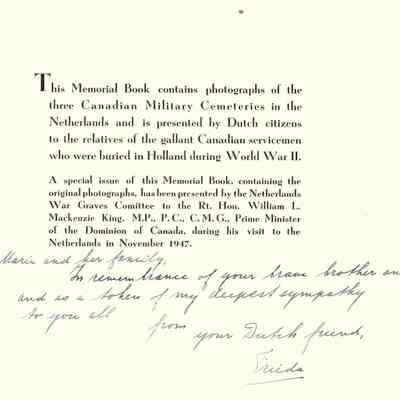 This Memorial Book contains photographs of the
three Canadian Military Cemeteries in the
Netherlands and is presented by Dutch citizens
to the relatives of the gallant Canadian servicemen
who were buried in Holland during World War II.
A special issue of this Memorial Book, containing the
original photographs, has been presented by the Netherlands
War Graves Comittee to the Rt. Hon. William L.
Mackenzie King, M.P., P.C., C.M.G., Prime Minister
of the Dominion of Canada, during his visit to the
Netherlands in November 1947.
Marie and her family,
In remembrance of your brave brother an
and as a token of my deepest sympathy
to you all from
your Dutch friend,
Frieda